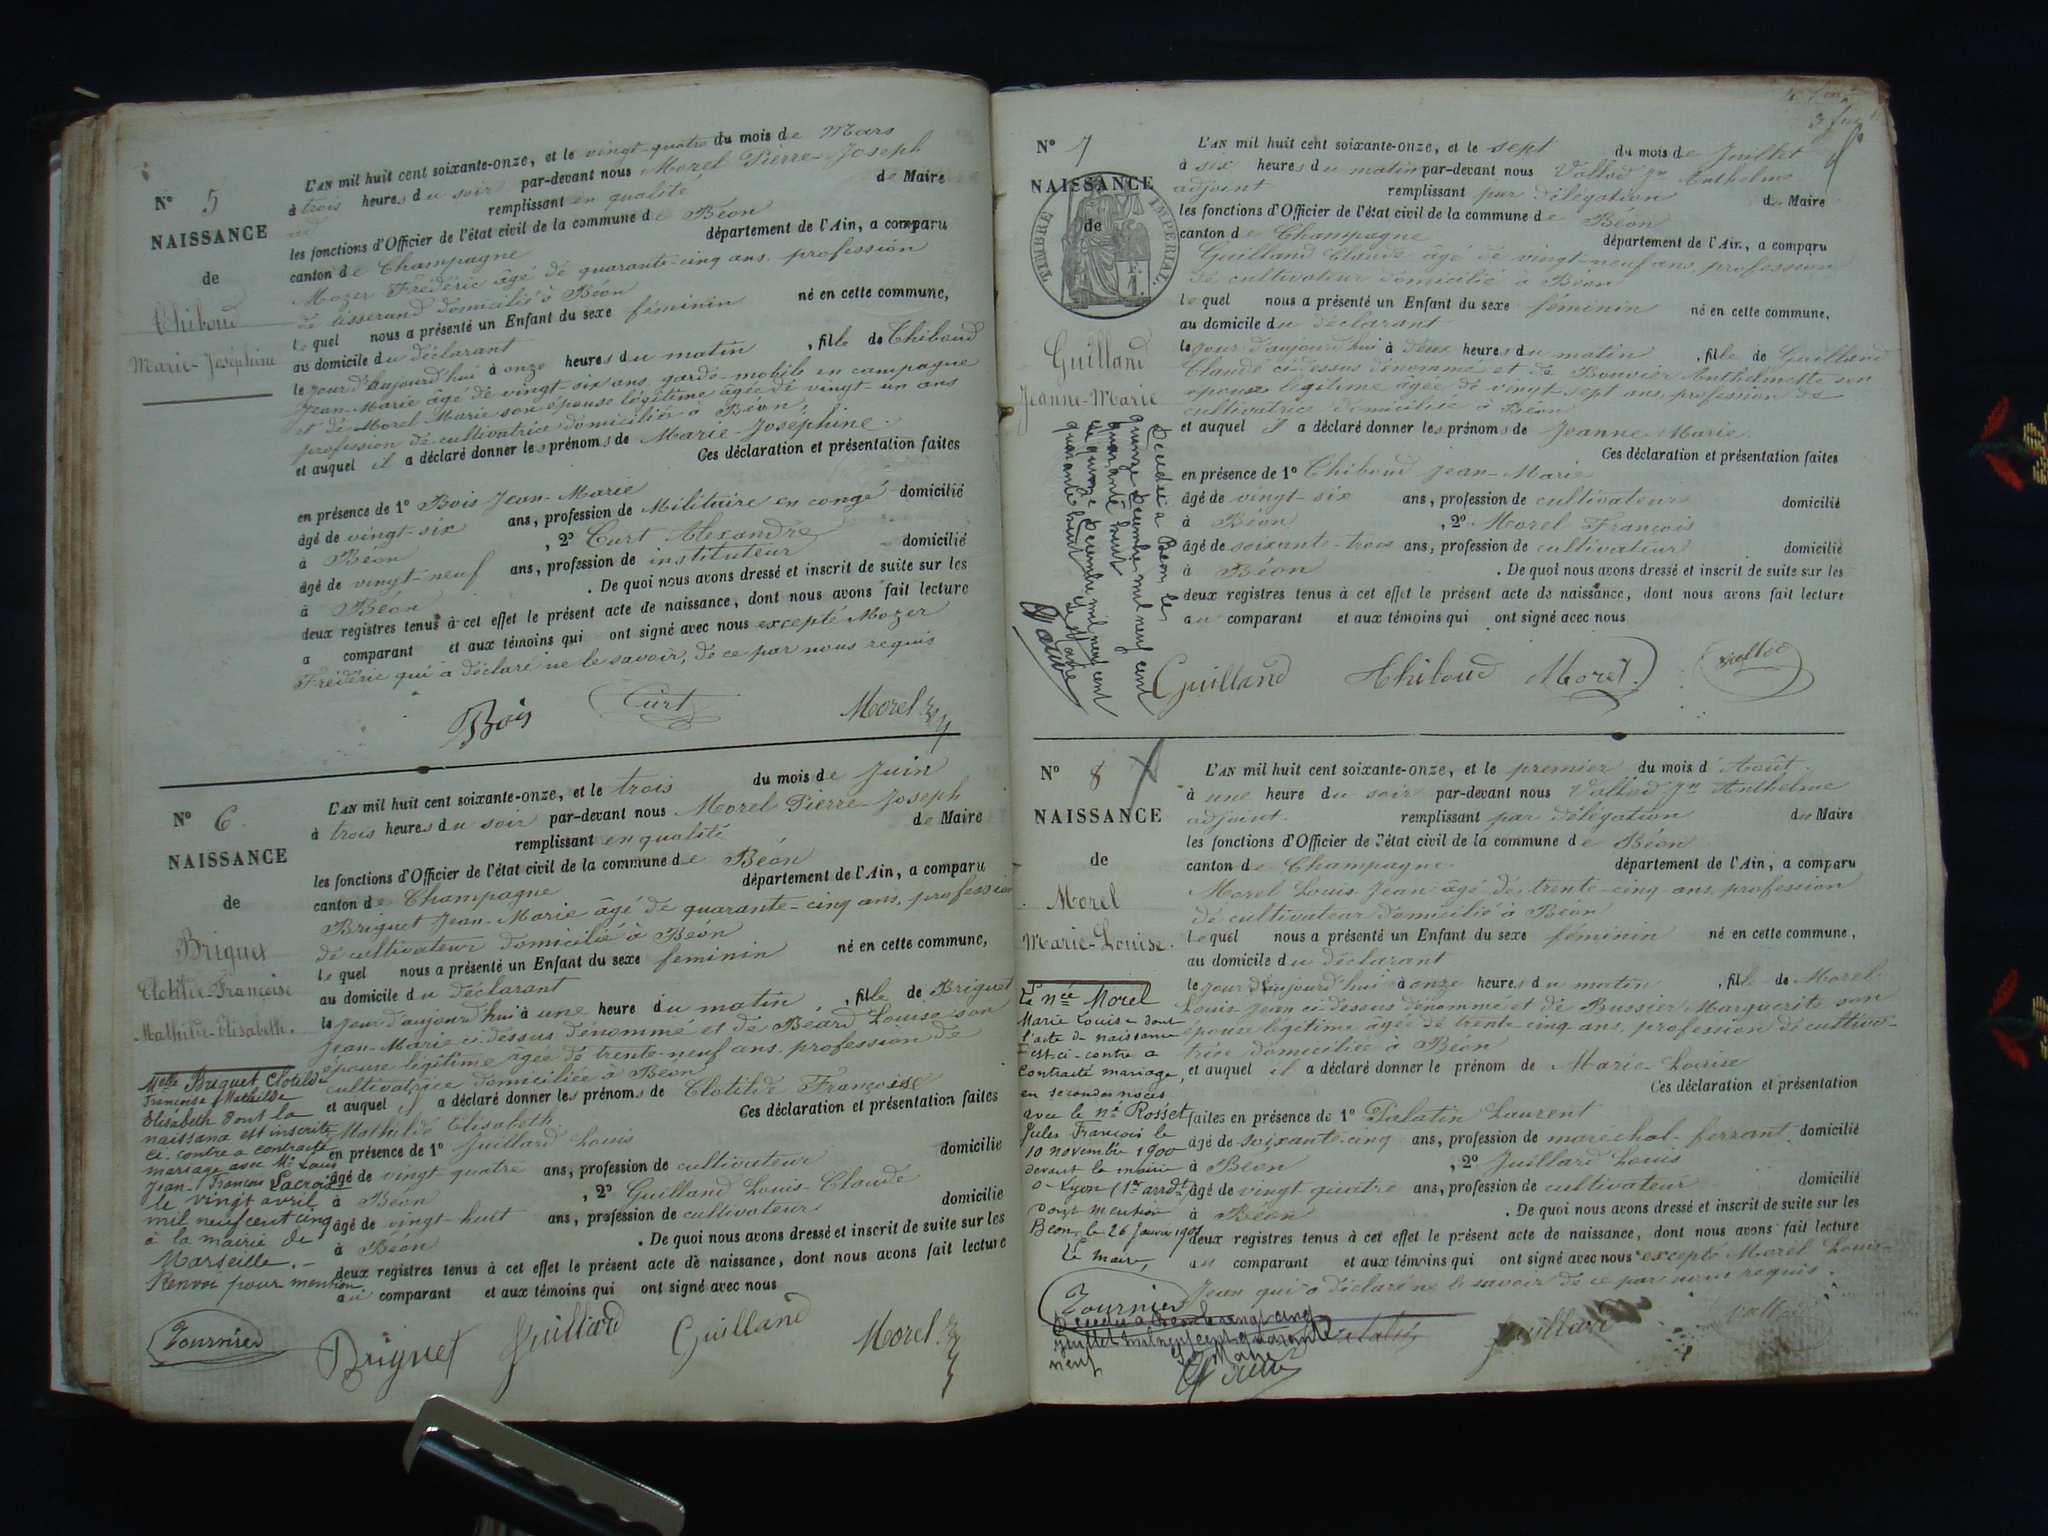 N° 5
NAISSANCE
de
Thiboud
Marie-Joséphine
L'AN mil huit cent soixante-onze, et le vingt-quatre du mois de Mars
à trois heures du soir par-devant nous Morel Pierre-Joseph
remplissant en qualité de Maire
les fonctions d'Officier de l'état civil de la commune de Béon
canton de Champagne département de l'Ain, a comparu
Mozer Frédéric âgé de quarante-cinq ans, profession
de tisserand domicilié à Béon
lequel nous a présenté un Enfant du sexe féminin né en cette commune,
au domicile du déclarant
le jour d'aujourd'hui à onze heures du matin, fille de Thiboud
Jean-Marie âgé de vingt-six ans, garde-mobile en campagne
et de Morel Marie son épouse légitime âgée de vingt-un ans
profession de cultivatrice domiciliés à Béon,
et auquel il a déclaré donner les prénoms de Marie-Joséphine.
Ces déclaration et présentation faites
en présence de 1° Bois Jean-Marie
âgé de vingt-six ans, profession de Militaire en congé domicilié
à Béon, 2° Curt Alexandre
âgé de vingt-neuf ans, profession de instituteur domicilié
à Béon. De quoi nous avons dressé et inscrit de suite sur les
deux registres tenus à cet effet le présent acte de naissance, dont nous avons fait lecture
a comparant et aux témoins qui ont signé avec nous excepté Mozer
Frédéric qui a déclaré ne le savoir, de ce par nous requis
Bois Curt Morel
N° 6
NAISSANCE
de
Briguet
Clotilde-Françoise
Mathilde-Elisabeth.
Melle Briguet Clotilde
Françoise Mathilde
Elisabeth dont la
naissance est inscrite
ci-contre a contracté
mariage avec Mr Louis
Jean-François Lacroix
le vingt avril
mil neuf cent cinq
à la mairie de
Marseille.-
Renvoi pour mention
Tournier
L'AN mil huit cent soixante-onze, et le trois du mois de Juin
à trois heures du soir par-devant nous Morel Pierre-Joseph
remplissant en qualité de Maire
les fonctions d'Officier de l'état civil de la commune de Béon
canton de Champagne département de l'Ain, a comparu
Briguet Jean-Marie âgé de quarante-cinq ans, profession
de cultivateur domicilié à Béon
lequel nous a présenté un Enfant du sexe féminin né en cette commune,
au domicile du déclarant
le jour d'aujourd'hui à une heure du matin, fille de Briguet
Jean-Marie ci-dessus dénommé et de Béard Louise son
épouse légitime âgée de trente-neuf ans, profession de
cultivatrice domiciliée à Béon
et auquel il a déclaré donner les prénoms de Clotilde Françoise
Mathilde Elisabeth. Ces déclaration et présentation faites
en présence de 1° Juillard Louis
âgé de vingt quatre ans, profession de cultivateur domicilié
à Béon, 2° Guilland Louis-Claude
âgé de vingt-huit ans, profession de cultivateur domicilié
à Béon. De quoi nous avons dressé et inscrit de suite sur les
deux registres tenus à cet effet le présent acte de naissance, dont nous avons fait lecture
au comparant et aux témoins qui ont signé avec nous
Briguet Juillard Guilland Morel
N° 7
NAISSANCE
de
TIMBRE IMPERIAL
Guilland
Jeanne-Marie
Décédée à Béon le
quinze Décembre mil neuf cent
quarante huit
Le quinze Décembre mil neuf cent
quarante huit Le Maire
L'AN mil huit cent soixante-onze, et le sept du mois de Juillet
à six heures du matin par-devant nous Vallod Jn Anthelme
adjoint remplissant par délégation du Maire
les fonctions d'Officier de l'état civil de la commune de Béon
canton de Champagne département de l'Ain, a comparu
Guilland Claude âgé de vingt-neuf ans, profession
de cultivateur domicilié à Béon
lequel nous a présenté un Enfant du sexe féminin né en cette commune,
au domicile du déclarant
le jour d'aujourd'hui à deux heures du matin, fille de Guilland
Claude ci-dessus dénommé et de Bouvier Anthelmette son
épouse légitime âgée de vingt-sept ans, profession de
cultivatrice domiciliée à Béon
et auquel il a déclaré donner les prénoms de Jeanne-Marie.
Ces déclaration et présentation faites
en présence de 1° Thiboud Jean-Marie
âgé de vingt-six ans, profession de cultivateur domicilié
à Béon, 2° Morel François
âgé de soixante-trois ans, profession de cultivateur domicilié
à Béon. De quoi nous avons dressé et inscrit de suite sur les
deux registres tenus à cet effet le présent acte de naissance, dont nous avons fait lecture
au comparant et aux témoins qui ont signé avec nous
Guilland Thiboud Morel Vallod
N° 8
NAISSANCE
de
Morel
Marie-Louise.
La née Morel
Marie Louise dont
l'acte de naissance
est ci-contre a
contracté mariage,
en secondes noces
avec le né Rosset
Jules François le
10 novembre 1900
devant la mairie
à Lyon (1er arrdt)
dont mention
Béon, le 26 Janvier 1901
Le maire,
Tournier
L'AN mil huit cent soixante-onze, et le premier du mois d'Août.
à une heure du soir par-devant nous Vallod Jn Anthelme
adjoint. remplissant par délégation du Maire
les fonctions d'Officier de l'état civil de la commune de Béon
canton de Champagne département de l'Ain, a comparu
Morel Louis Jean âgé de trente-cinq ans, profession
de cultivateur domicilié à Béon
lequel nous a présenté un Enfant du sexe féminin né en cette commune,
au domicile du déclarant
le jour d'aujourd'hui à onze heures du matin, fille de Morel
Louis-Jean ci-dessus dénommé et de Bussier Marguerite son
épouse légitime âgée de trente-cinq ans, profession de cultiva-
trice domiciliée à Béon
et auquel il a déclaré donner le prénom de Marie-Louise
Ces déclaration et présentation
faites en présence de 1° Palatin Laurent
âgé de soixante-cinq ans, profession de maréchal-ferrant domicilié
à Béon, 2° Juillard Louis
âgé de vingt quatre ans, profession de cultivateur domicilié
à Béon. De quoi nous avons dressé et inscrit de suite sur les
deux registres tenus à cet effet le présent acte de naissance, dont nous avons fait lecture
au comparant et aux témoins qui ont signé avec nous excepté Morel Louis-
Jean qui a déclaré ne le savoir de ce par nous requis.
Décédée à vingt cinq
juillet mil neuf cent quarante
neuf Le Maire
Palatin Juillard Vallod